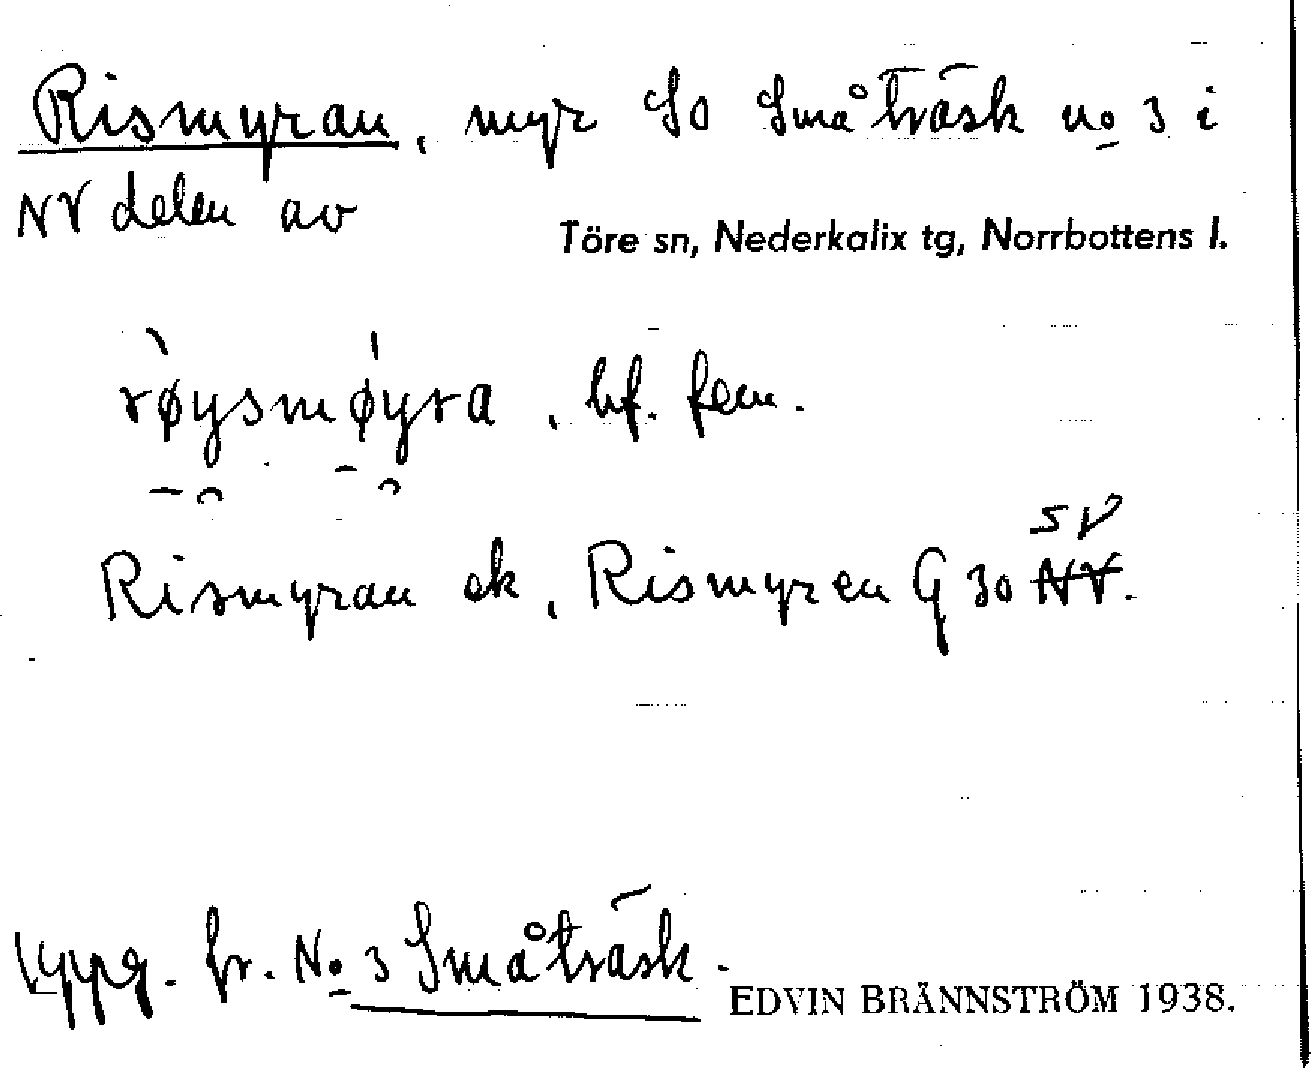 Rismyran, myr SO Småträsk no 3 i
NV delen av
Töre sn, Nederkalix tg, Norrbottens l.
røysmøyra, bf. fem.
SV
Rismyran ek, Rismyren G 30 NV.
Uppg. fr. No 3 Småträsk.
EDVIN BRÄNNSTRÖM 1938.